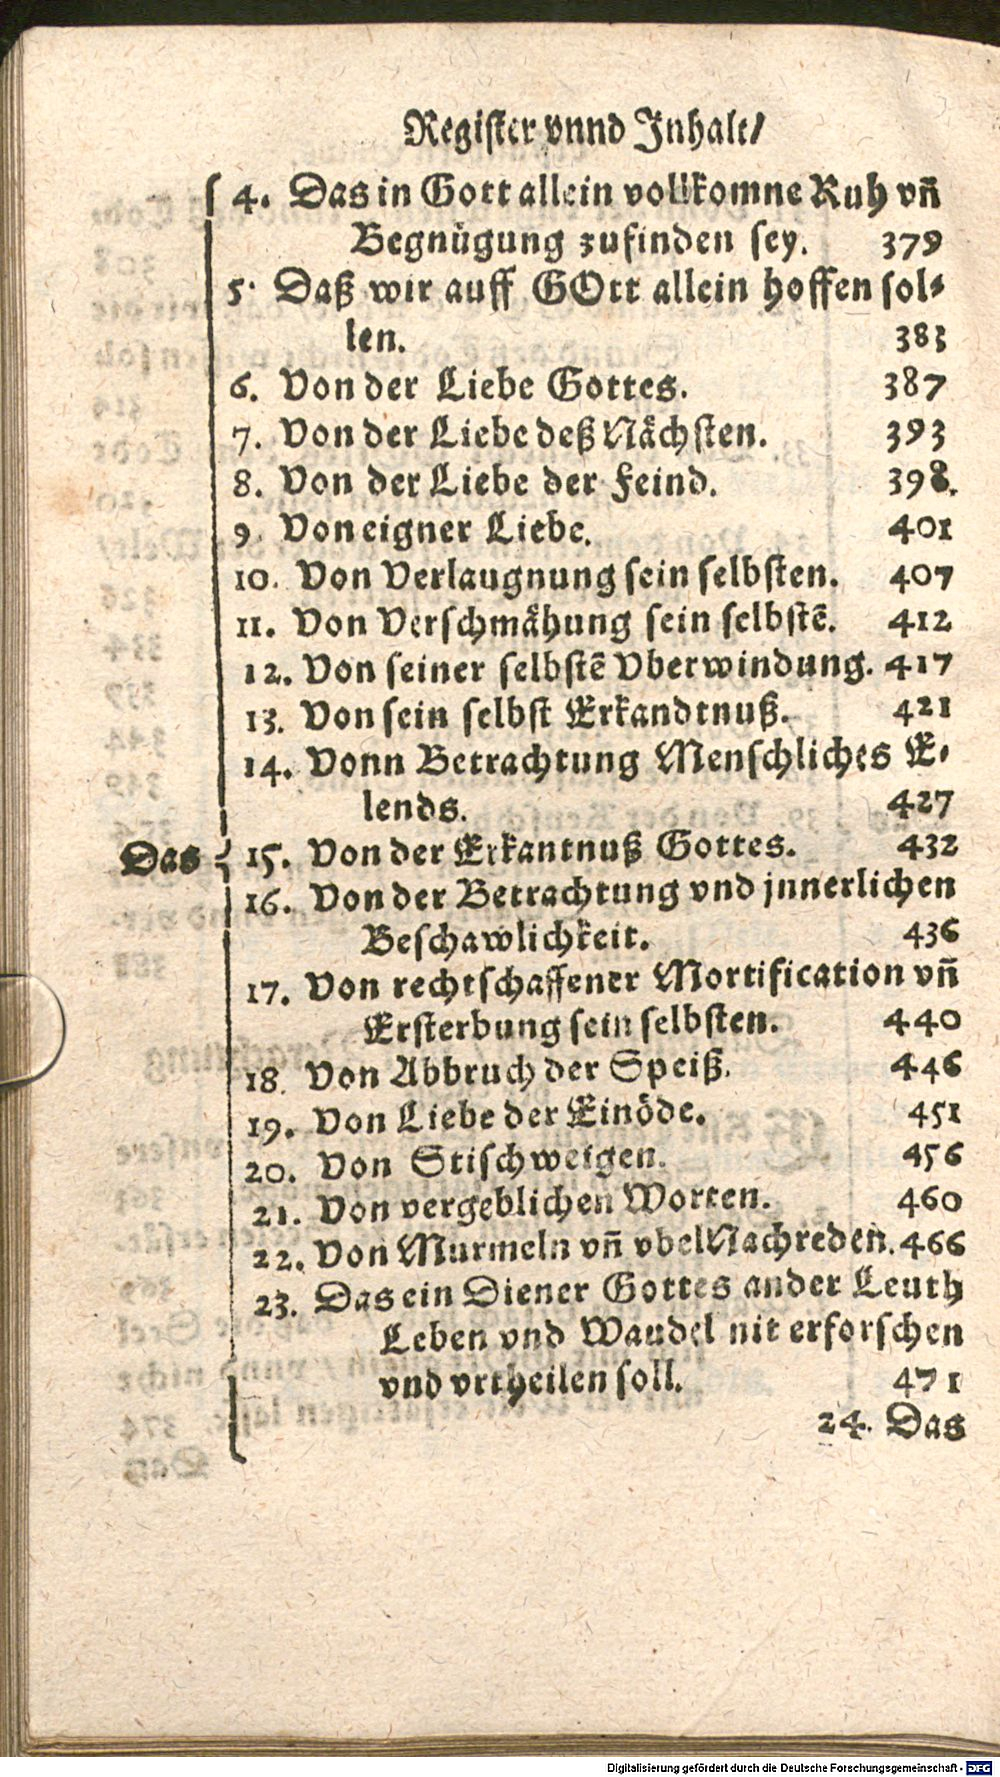 Register vnnd Inhalt/
4. Das in Gott allein vollkomne Ruh vñ
Begnügung zufinden sey. 379
5. Daß wir auff GOtt allein hoffen sol⸗
len. 383
6. Von der Liebe Gottes. 387
7. Von der Liebe deß Nächsten. 393
8. Von der Liebe der Feind. 398.
9. Von eigner Liebe. 401
10. Von Verlaugnung sein selbsten. 407
11. Von Verschmähung sein selbstē. 412
12. Von seiner selbstē Vberwindung. 417
13. Von sein selbst Erkandtnuß. 421
14. Vonn Betrachtung Menschliches E⸗
lends. 427
Das 15. Von der Erkantnuß Gottes. 432
16. Von der Betrachtung vnd jnnerlichen
Beschawlichkeit. 436
17. Von rechtschaffener Mortification vñ
Ersterbung sein selbsten. 440
18. Von Abbruch der Speiß. 446
19. Von Liebe der Einöde. 451
20. Von Stischweigen. 456
21. Von vergeblichen Worten. 460
22. Von Murmeln vñ vbel Nachreden. 466
23. Das ein Diener Gottes ander Leuth
Leben vnd Waudel nit erforschen
vnd vrtheilen soll. 471
24. Das
Digitalisierung gefördert durch die Deutsche Forschungsgemeinschaft - DFG